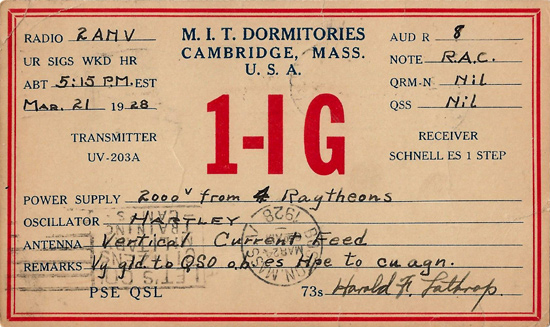 RADIO 2AMV
M. I. T. DORMITORIES
AUD R 8
UR SIGS WKD HR
CAMBRIDGE, MASS.
NOTE R.A.C.
ABT 5:15 P.M. EST
U. S. A.
QRM-N Nil
Mar. 21 1928
QSS Nil
1-1G
TRANSMITTER
UV-203A
RECEIVER
SCHNELL ES 1 STEP
POWER SUPPLY 2000v from 4 Raytheons
OSCILLATOR HARTLEY
ANTENNA Vertical Current Feed
REMARKS Vy gld to QSO o.b. es Hpe to cu agn.
PSE QSL
73s Harold F. Lathrop
1928
MASS.
LET'S
CITIZENS
MILITARY
TRAINING